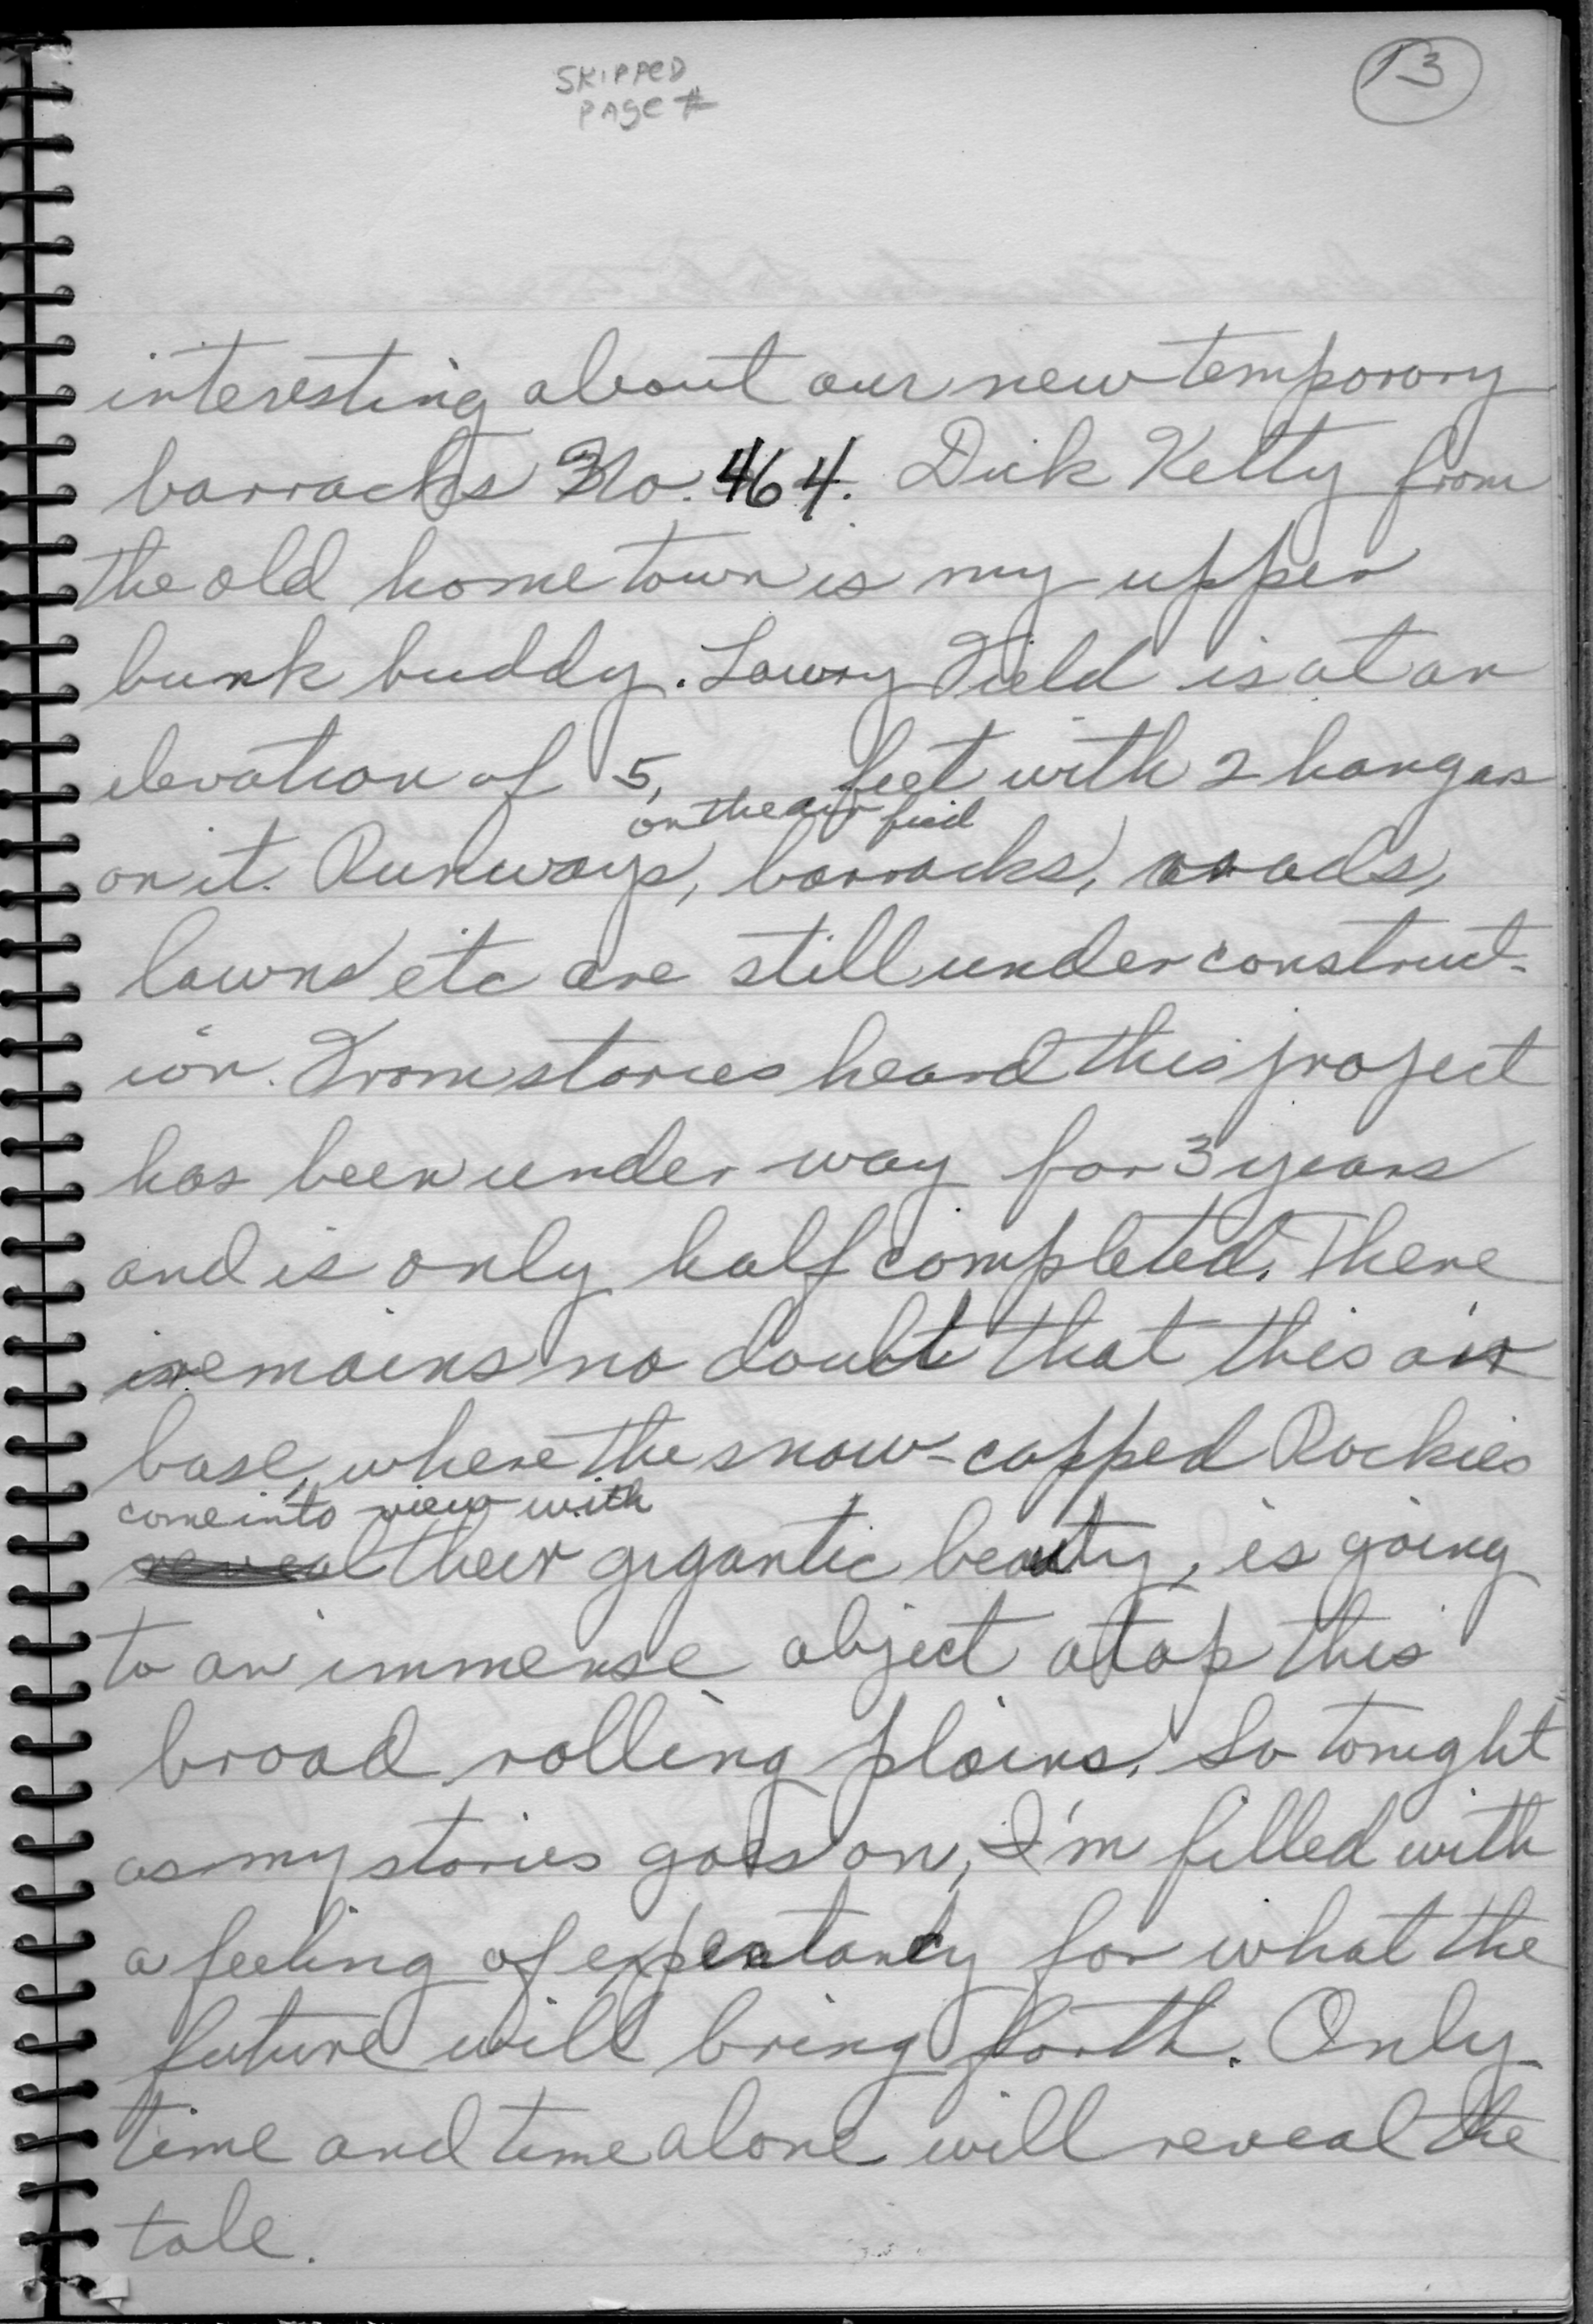 SKIPPED
PAGE #
13
interesting about our new temporary
barracks No. 464. Dick Kelty from
the old home town is my upper
bunk buddy. Lowry Field is at an
elevation of 5,      feet with 2 hangars
on the air field
on it. Runways, barracks, roads,
lawns etc are still under construct-
ion. From stories heard this project
has been under way for 3 years
and is only half completed. There
remains no doubt that this air
base, where the snow-capped Rockies
come into view with
reveal their gigantic beauty, is going
to an immense object atop this
broad rolling plains. So tonight
as my stories goes on, I'm filled with
a feeling of expectancy for what the
future will bring forth. Only
time and time alone will reveal the
tale.